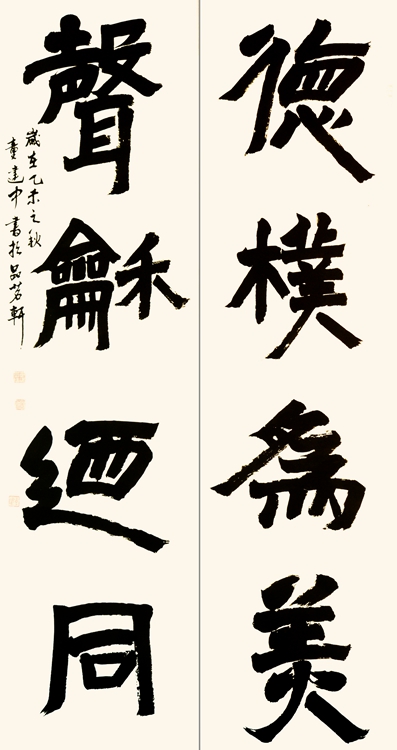 德樸爲美
聲龢迺同
歲在乙未之秋
童建中書於品茗軒